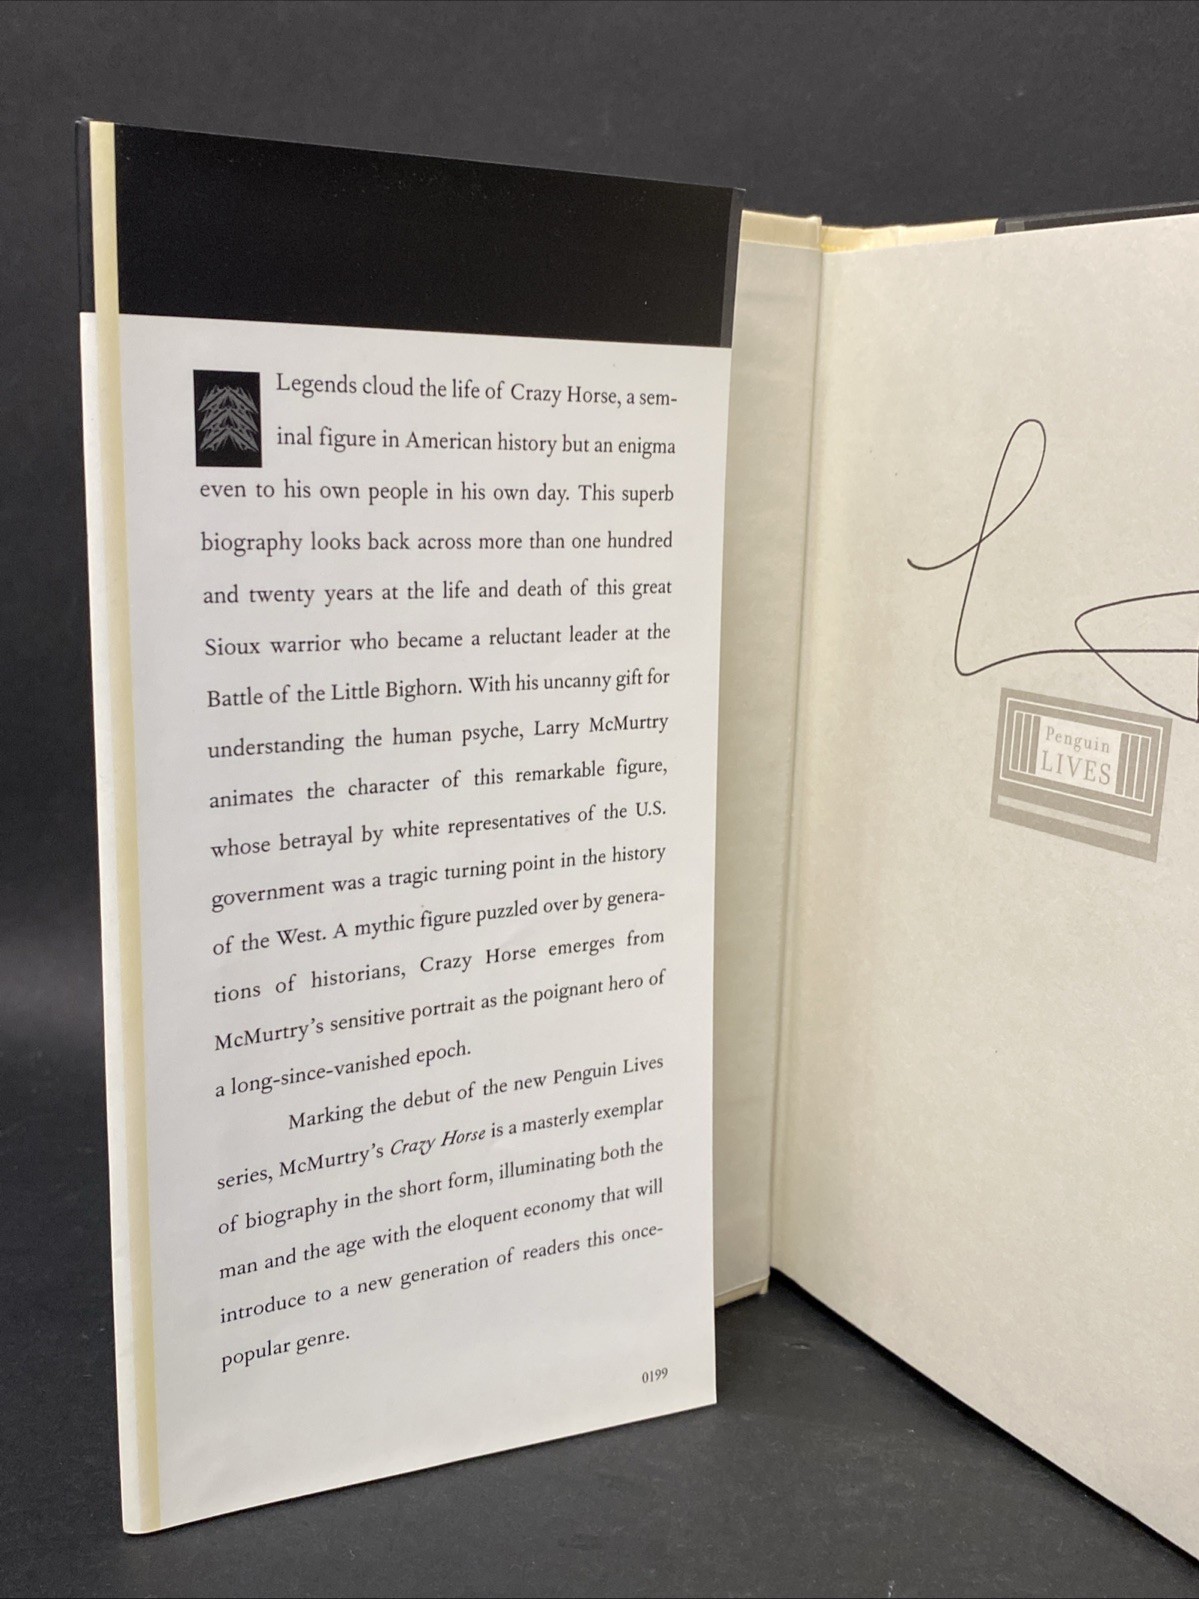 Legends cloud the life of Crazy Horse, a sem-
inal figure in American history but an enigma
even to his own people in his own day. This superb
biography looks back across more than one hundred
and twenty years at the life and death of this great
Sioux warrior who became a reluctant leader at the
Battle of the Little Bighorn. With his uncanny gift for
understanding the human psyche, Larry McMurtry
animates the character of this remarkable figure,
whose betrayal by white representatives of the U.S.
government was a tragic turning point in the history
of the West. A mythic figure puzzled over by genera-
tions of historians, Crazy Horse emerges from
McMurtry's sensitive portrait as the poignant hero of
a long-since-vanished epoch.
Marking the debut of the new Penguin Lives
series, McMurtry's Crazy Horse is a masterly exemplar
of biography in the short form, illuminating both the
man and the age with the eloquent economy that will
introduce to a new generation of readers this once-
popular genre.
0199
Penguin
LIVES